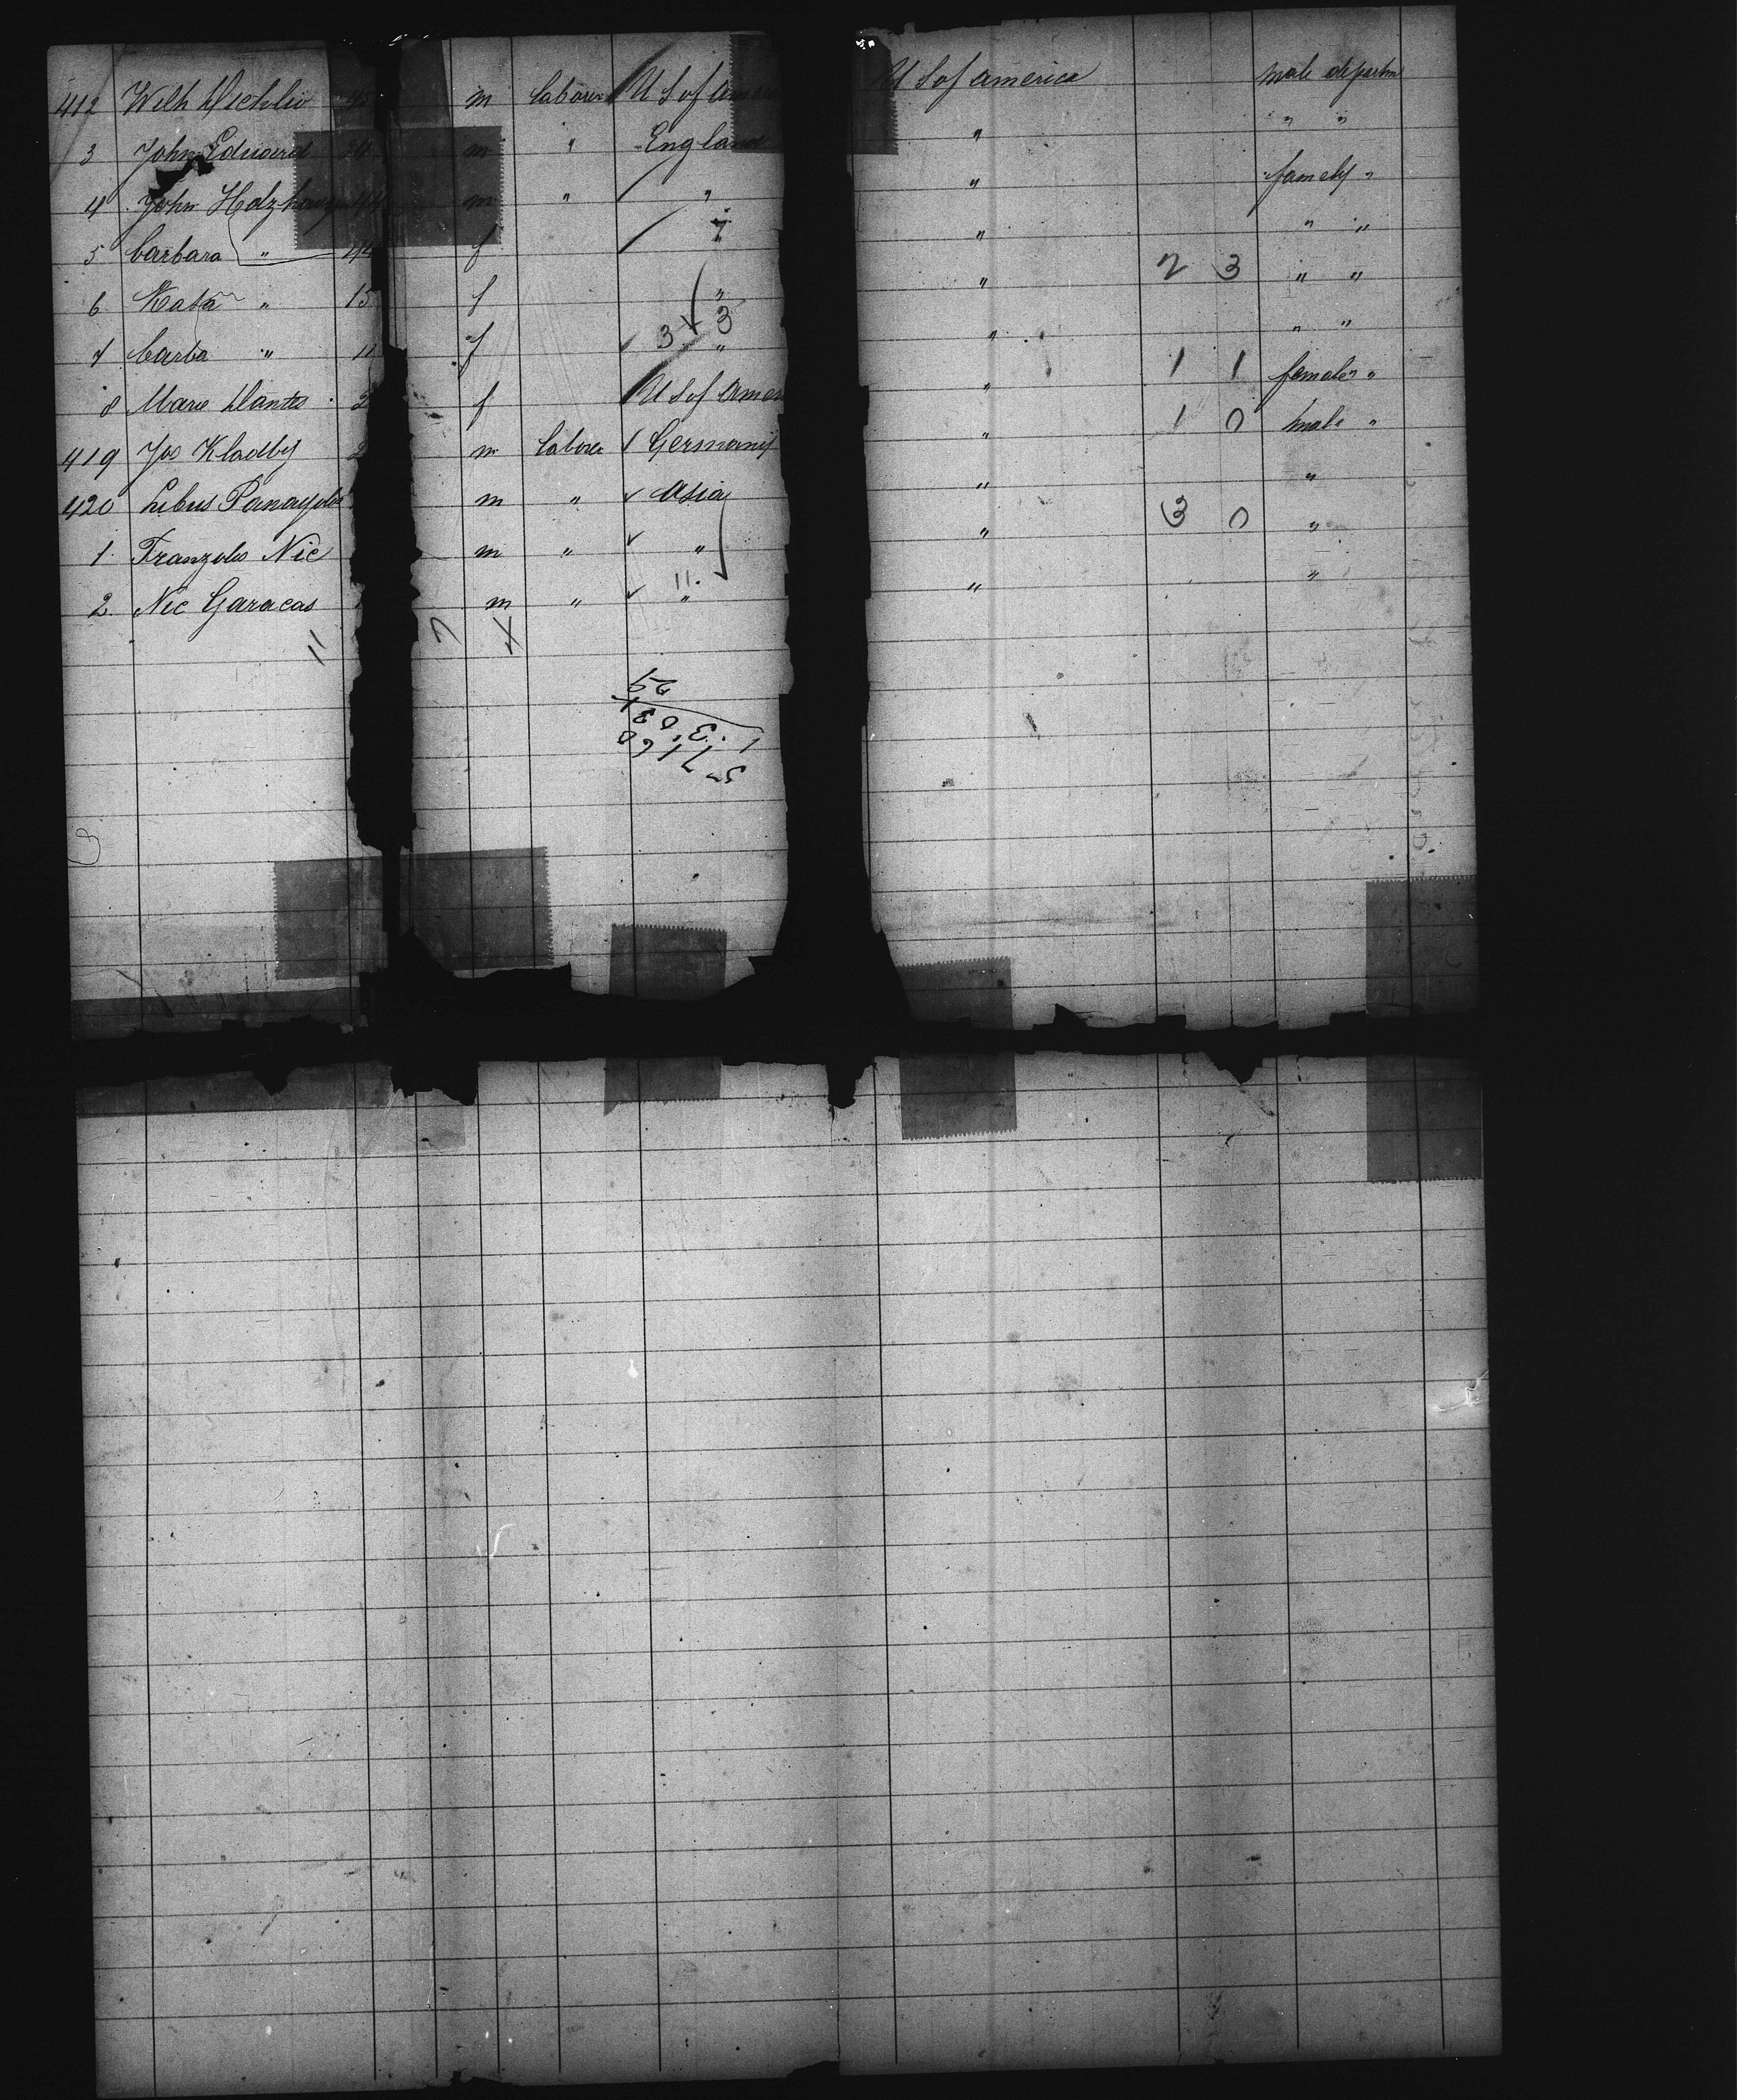 412 Wilh 45 m labore U S of Ame U S of america male departm
3 John Eduard 24 m " England " " "
4 John Holzhau 44 m " " " famely "
5 barbara " 44 f " " " "
6 Kata " 15 f " " 2 3 " "
7 barba " 11 f 3 3 " " " "
8 Marie Dantes 2 f U S of Amer " 1 1 female "
419 Jos Kladby 2 m labore Germany " 1 0 male "
420 Libus Panayolo m " Asia " "
1 Franzolo Nic m " " " 3 0 "
2 Nic Garacas m " 11 " " "
11 7 4